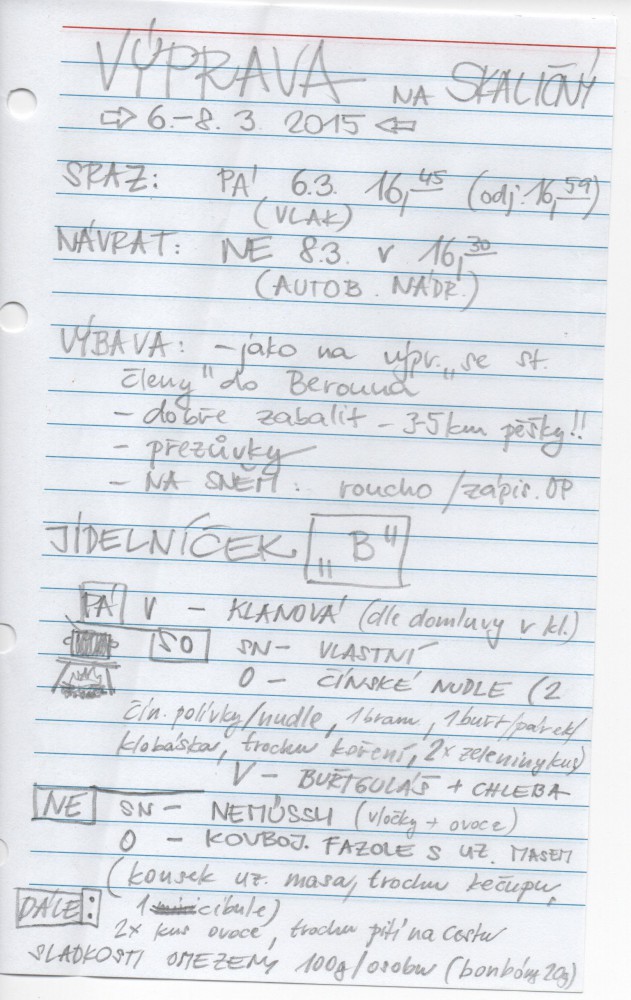 VÝPRAVA NA SKALIČNÝ
⇨ 6.-8. 3. 2015 ⇦
SRAZ: PÁ 6.3. 16,45 (odj: 16,59)
(VLAK)
NÁVRAT: NE 8.3. v 16,30
(AUTOB. NÁDR.)
VÝBAVA: - jako na výpr. „se st.
členy" do Berouna
- dobře zabalit - 3-5 km pěšky!!
- přezůvky
- NA SNĚM: roucho /zápis. OP
JÍDELNÍČEK „B"
PÁ V - KLANOVÁ (dle domluvy v kl.)
SO SN- VLASTNÍ
O - ČÍNSKÉ NUDLE (2
čín. polívky/nudle, 1 bram, 1 buřt/párek/
klobáska, trochu koření, 2x zeleniny kus)
V - BUŘTGULÁŠ + CHLEBA
NE SN - NEMÜSSLI (vločky + ovoce)
O - KOVBOJ. FAZOLE S UZ. MASEM
(kousek uz. masa, trochu kečupu,
1 cibule)
DÁLE:
2x kus ovoce, trochu pití na cestu
SLADKOSTI OMEZENY 100g/osobu (bonbóny 20g)